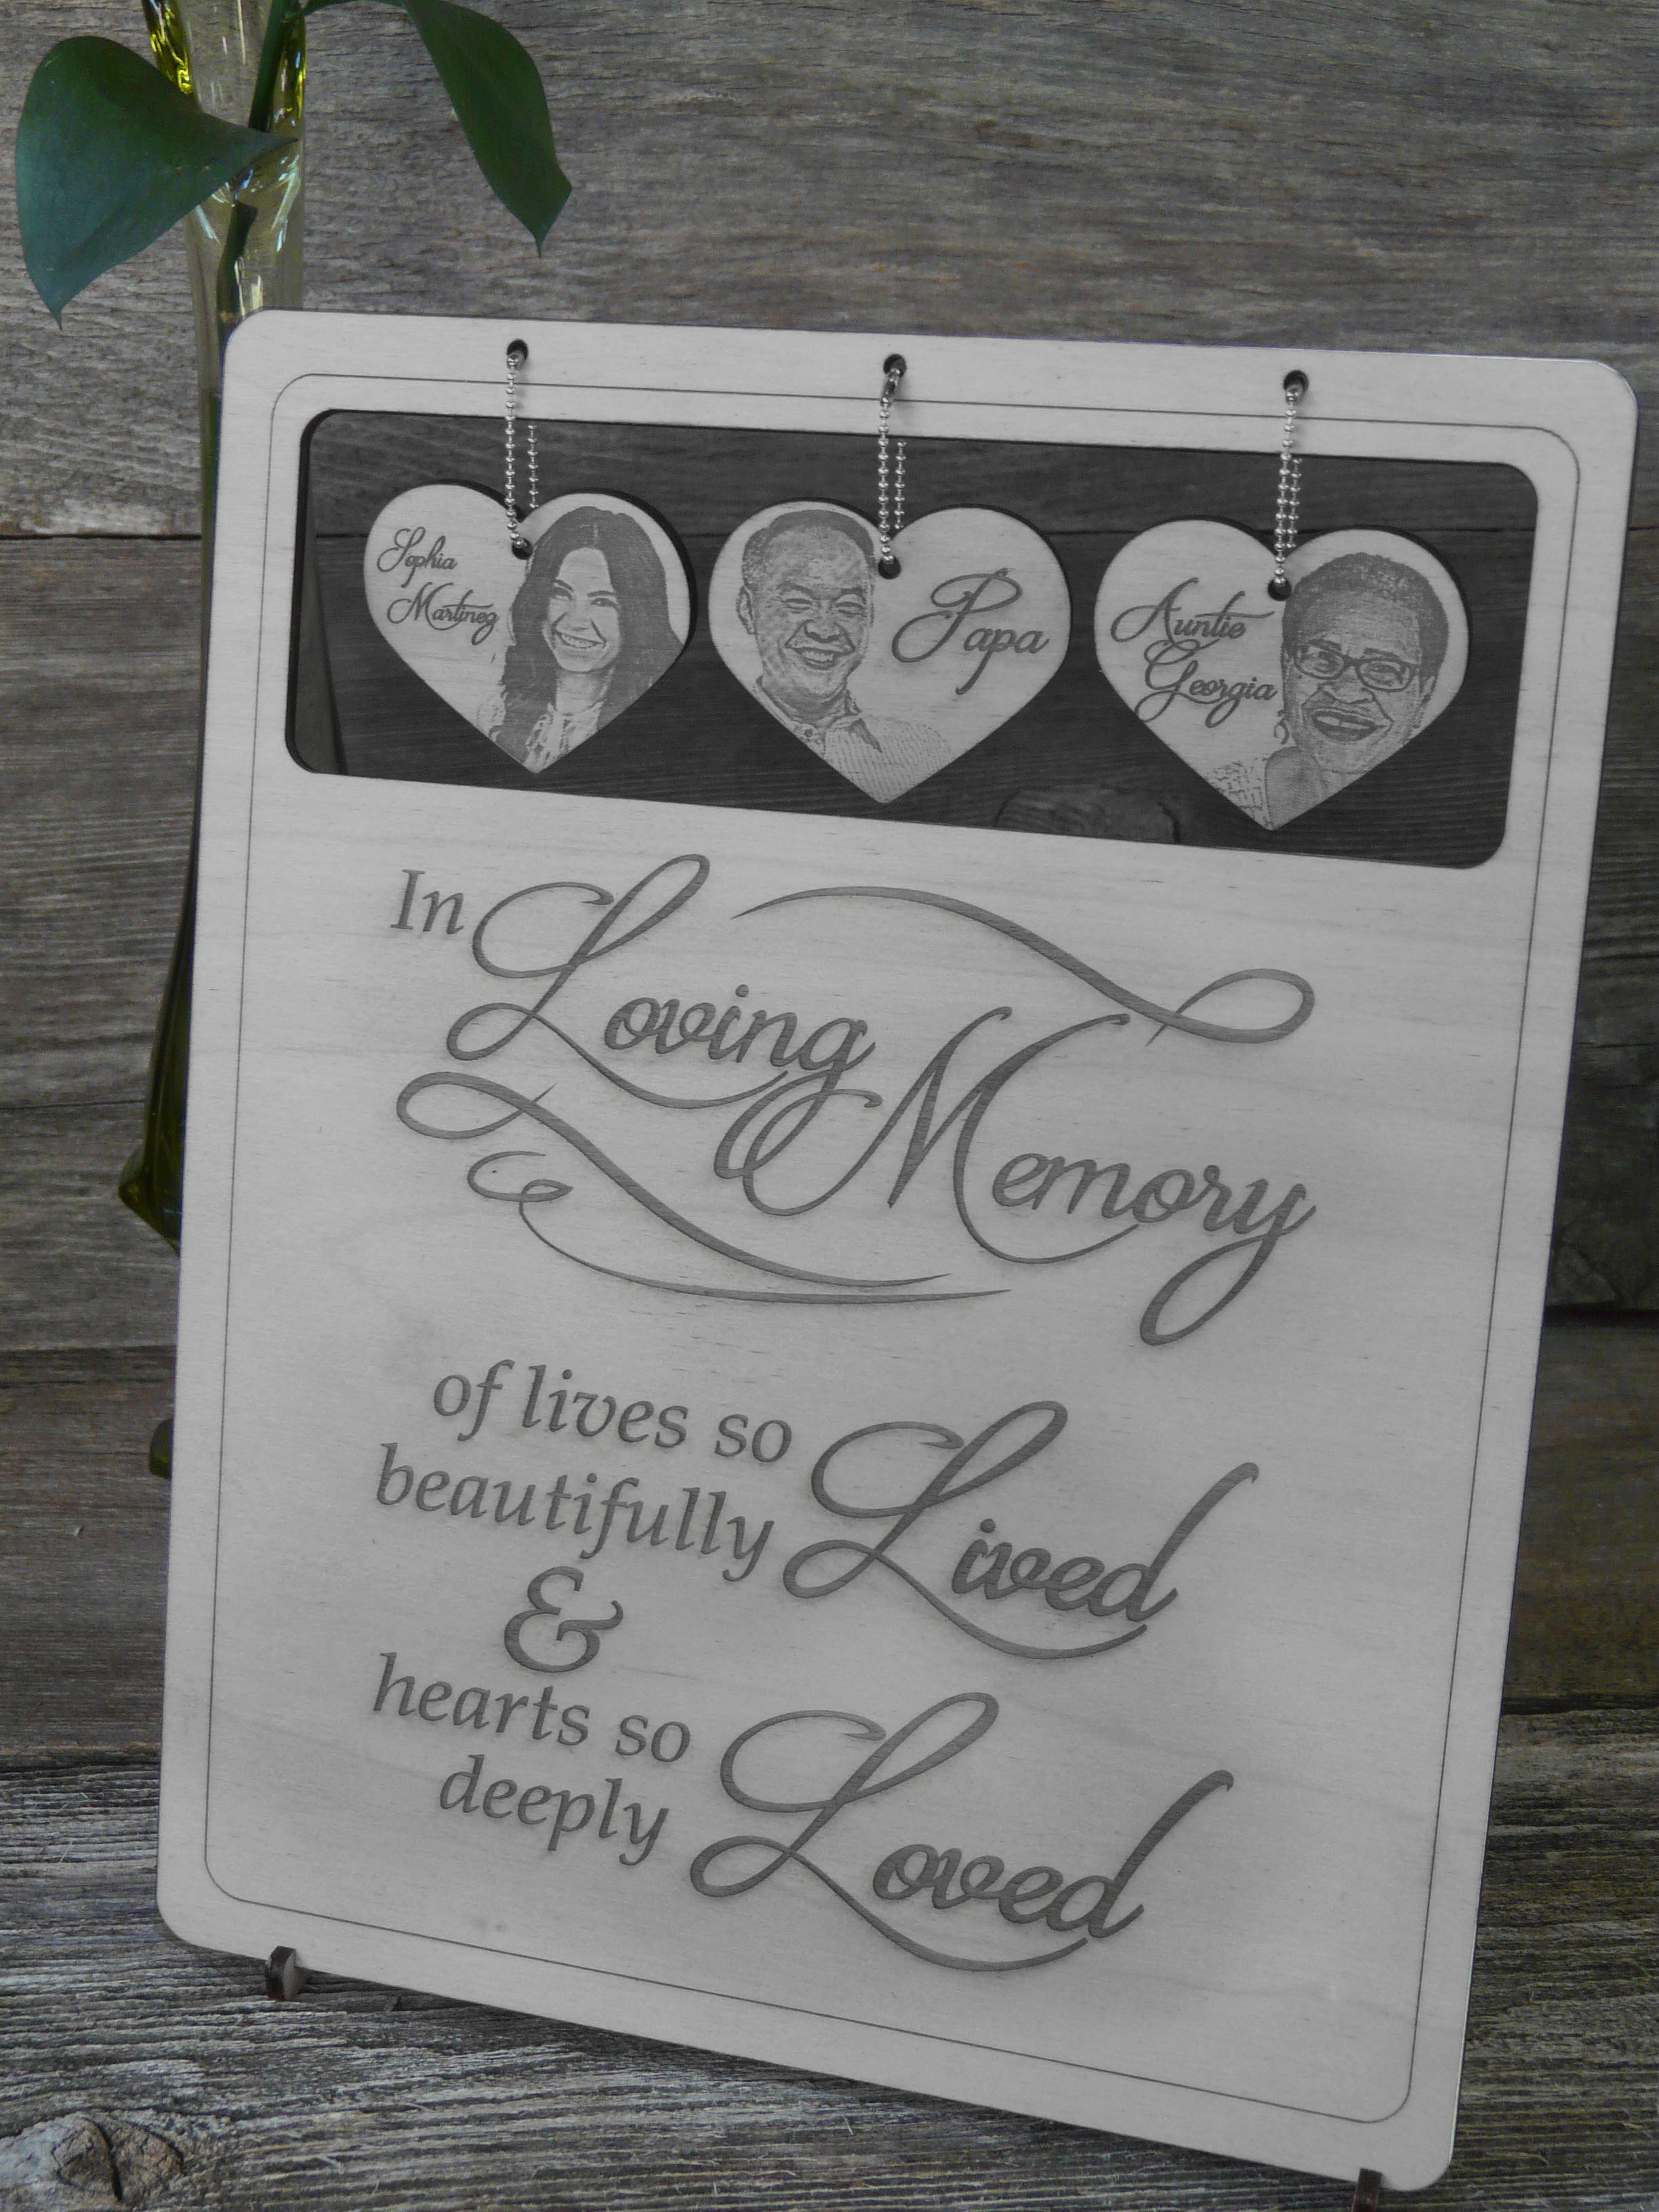 Sophia
Martinez
Papa
Auntie
Georgia
In Loving Memory
of lives so
beautifully Lived
&
hearts so
deeply Loved